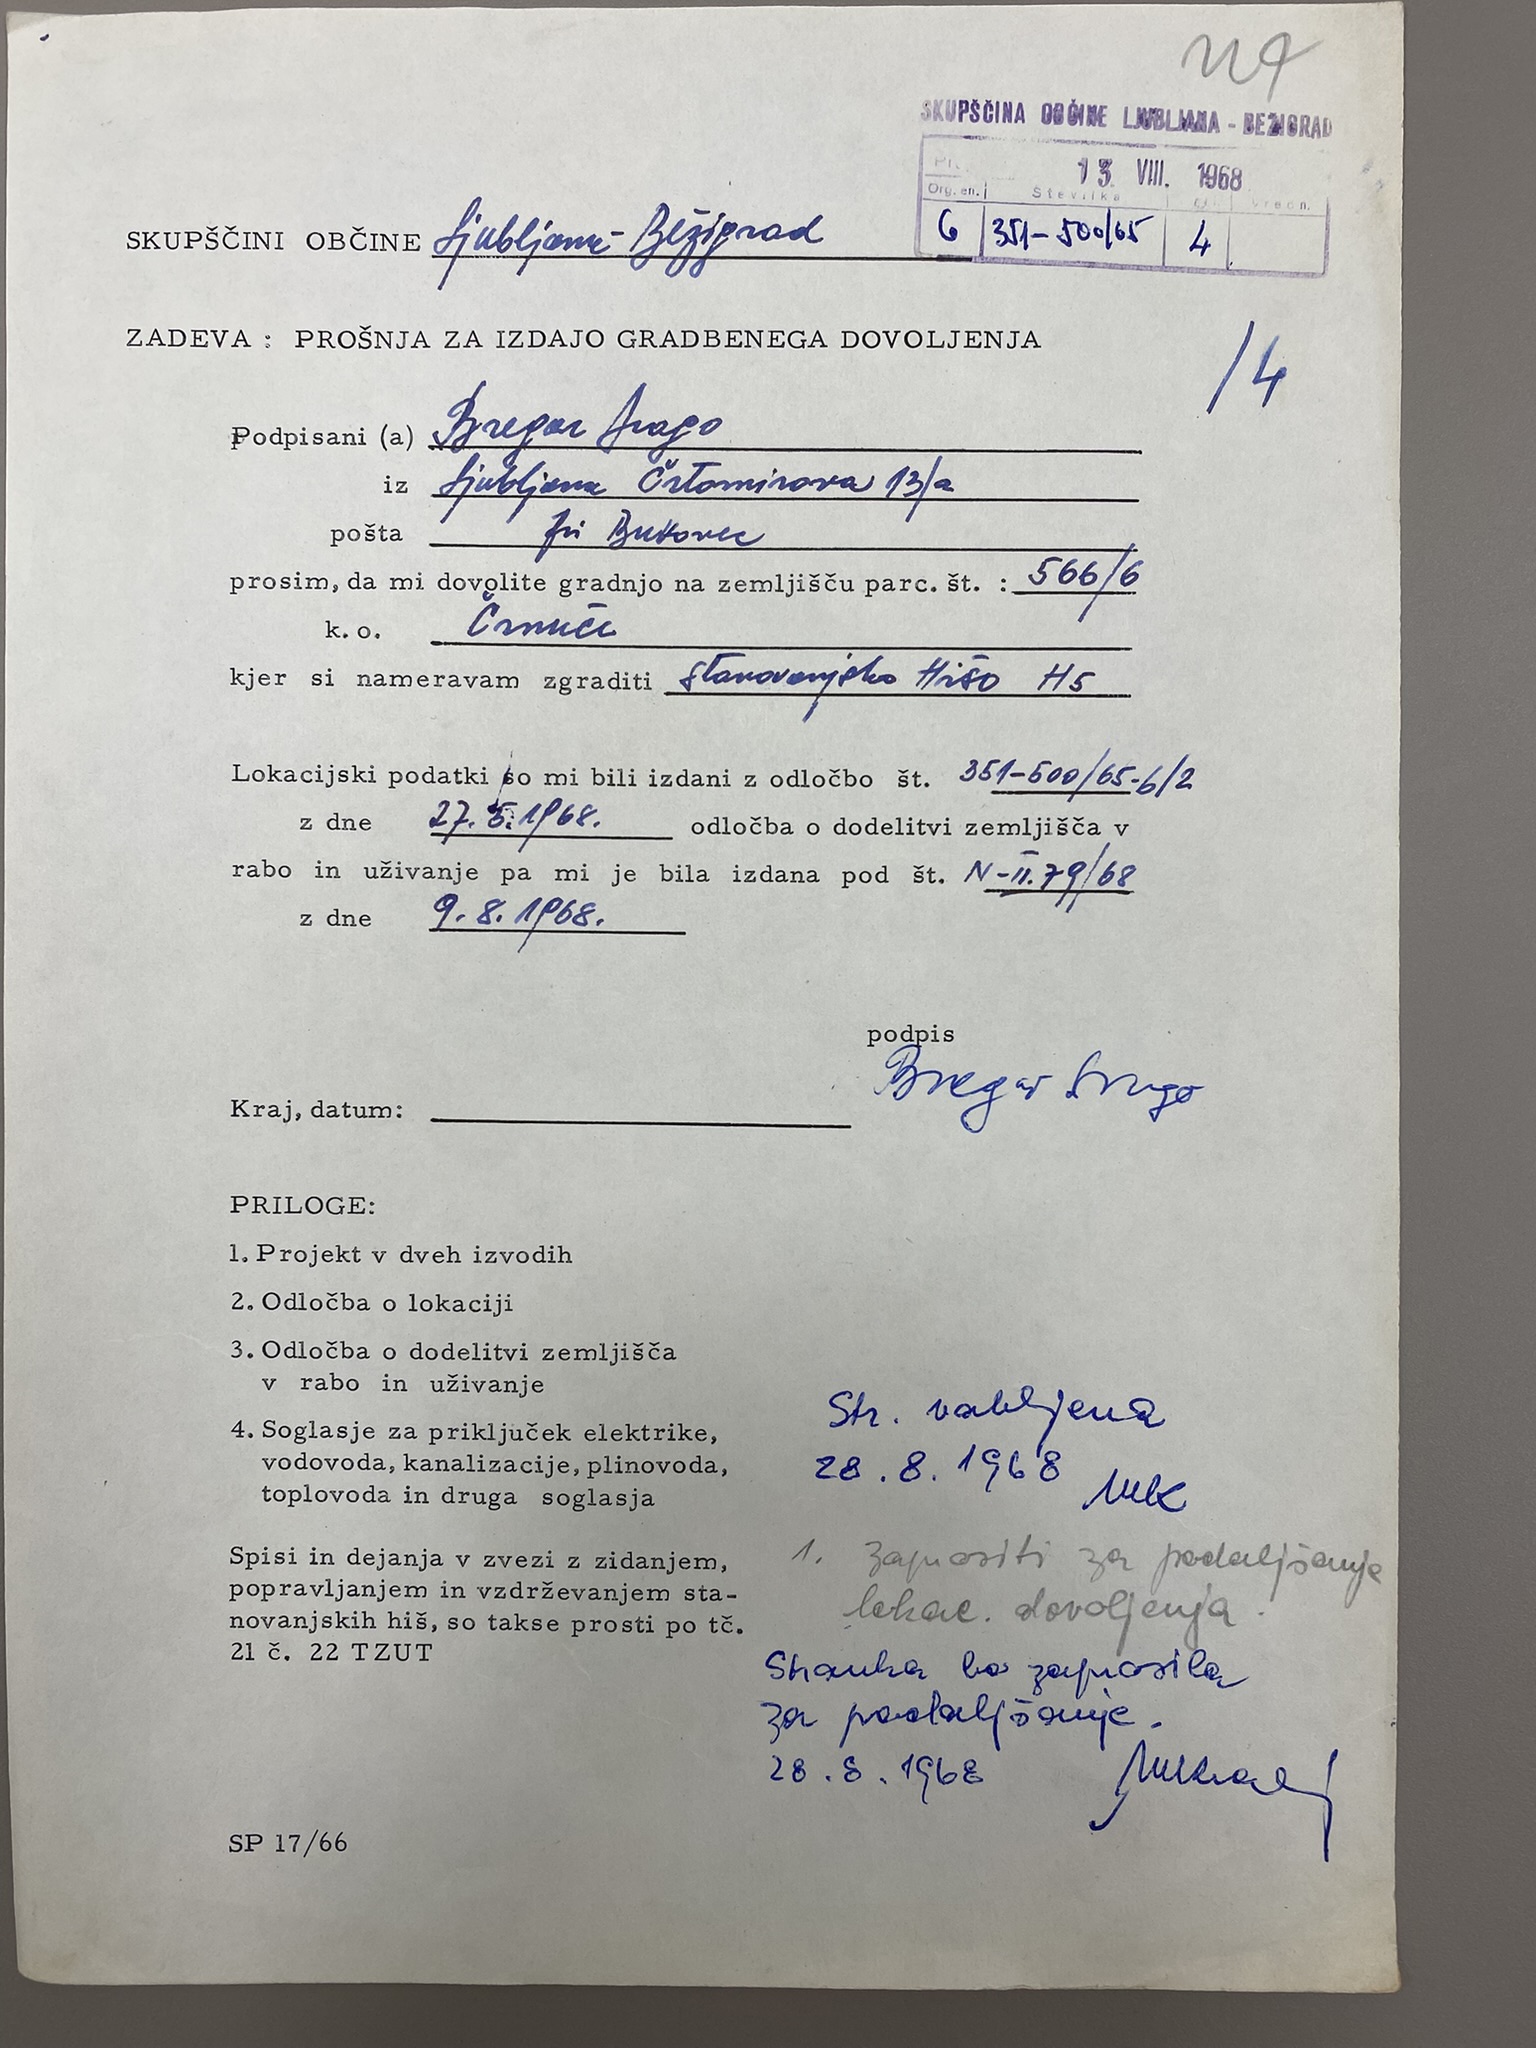 SKUPŠČINA OBČINE LJUBLJANA - BEŽIGRAD
13. VIII. 1968
Org. en. Številka
6 351-500/65 4
SKUPŠČINI OBČINE Ljubljana-Bežigrad
ZADEVA : PROŠNJA ZA IZDAJO GRADBENEGA DOVOLJENJA
/4
Podpisani (a) Bregar Drago
iz Ljubljana Črtomirova 13/a
pošta pri Bukovec
prosim, da mi dovolite gradnjo na zemljišču parc. št. : 566/6
k. o. Črnuče
kjer si nameravam zgraditi stanovanjsko Hišo H5
Lokacijski podatki so mi bili izdani z odločbo št. 351-500/65-6/2
z dne 27. 5. 1968. odločba o dodelitvi zemljišča v
rabo in uživanje pa mi je bila izdana pod št. N-II.79/68
z dne 9. 8. 1968.
podpis
Bregar Drago
Kraj, datum:
PRILOGE:
1. Projekt v dveh izvodih
2. Odločba o lokaciji
3. Odločba o dodelitvi zemljišča
v rabo in uživanje
4. Soglasje za priključek elektrike,
vodovoda, kanalizacije, plinovoda,
toplovoda in druga soglasja
Spisi in dejanja v zvezi z zidanjem,
popravljanjem in vzdrževanjem sta-
novanjskih hiš, so takse prosti po tč.
21 č. 22 TZUT
Str. vabljena
28. 8. 1968
1. zaprositi za podaljšanje
lokac. dovoljenja.
Stranka bo zaprosila
za podaljšanje.
28. 8. 1968
SP 17/66